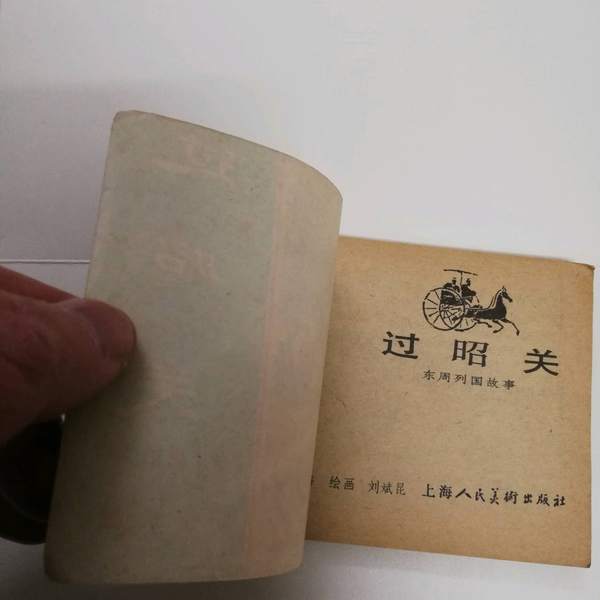 过昭关
东周列国故事
绘画 刘斌昆 上海人民美術出版社